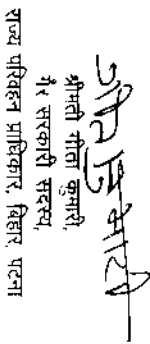 गीता कुमारी
श्रीमती गीता कुमारी,
गैर सरकारी सदस्य,
राज्य परिवहन प्राधिकार, बिहार, पटना